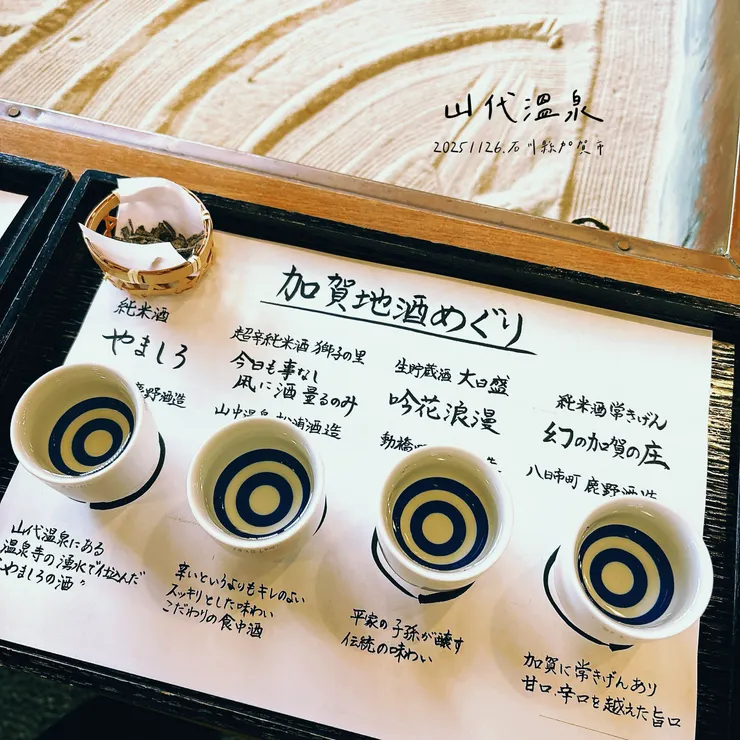 山代温泉
20251126.石川縣加賀市
加賀地酒めぐり
純米酒
やましろ
鹿野酒造
山代温泉にある
温泉寺の湧水で仕込んだ
やましろの酒。
超辛純米酒 獅子の里
今日も事なし
凩に酒 量るのみ
山中温泉 松浦酒造
辛いというよりもキレのよい
スッキリとした味わい
こだわりの食中酒
生貯蔵酒 大日盛
吟花浪漫
動橋
平家の子孫が醸す
伝統の味わい
純米酒 常きげん
幻の加賀の庄
八日市町 鹿野酒造
加賀に常きげんあり
甘口、辛口を越えた旨口